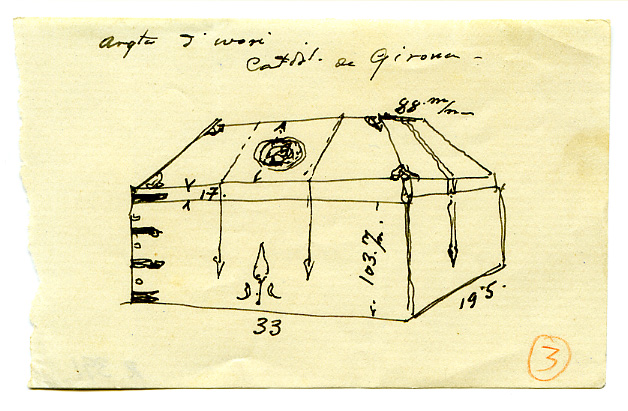 Arqta d'ivori
Catdl. de Girona -
88 m/m
17.
103 m/m.
33
19'5.
3